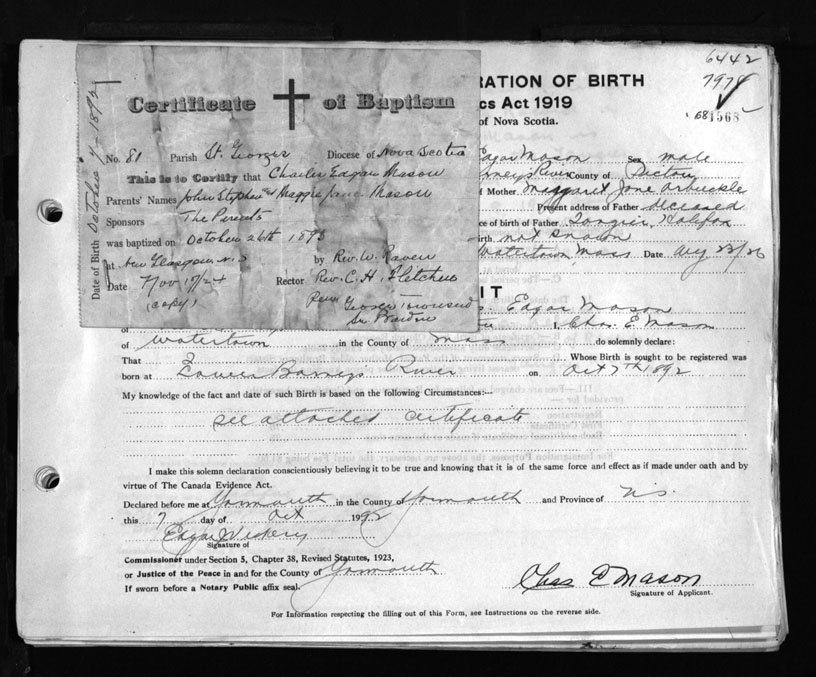 6442
7974
681568
RATION OF BIRTH
cs Act 1919
of Nova Scotia.
Certificate of Baptism
No. 81 Parish St. Georges Diocese of Nova Scotia
This is to Certify that Charles Edgar Mason
Parents' Names John Stephen and Maggie Jane Mason
Sponsors The Parents
was baptized on October 26th 1893
at New Glasgow N.S by Rev. W. Raven
Date Nov 17/24 Rector Rev. C. H. Fletcher
(copy) Per George Townsend
Sr. Warden
Date of Birth October 7 1892
Edgar Mason Sex male
rneys River County of Pictou
of Mother Margaret Jane Arbuckle
Present address of Father deceased
ce of birth of Father Tangier, Halifax
irth not known
Watertown Mass Date Aug 23/26
IT
s. Edgar Mason
of I, Chas. E. Mason
of Watertown in the County of Mass do solemnly declare:
That Whose Birth is sought to be registered was
born at Lower Barneys River on Oct 7th 1892
My knowledge of the fact and date of such Birth is based on the following Circumstances:--
see attached certificate
I make this solemn declaration conscientiously believing it to be true and knowing that it is of the same force and effect as if made under oath and by
virtue of The Canada Evidence Act.
Declared before me at Yarmouth in the County of Yarmouth and Province of N.S.
this 7 day of Oct 1992
Edgar
Signature of
Commissioner under Section 5, Chapter 38, Revised Statutes, 1923,
or Justice of the Peace in and for the County of Yarmouth
If sworn before a Notary Public affix seal.
Chas E Mason
Signature of Applicant.
For Information respecting the filling out of this Form, see Instructions on the reverse side.